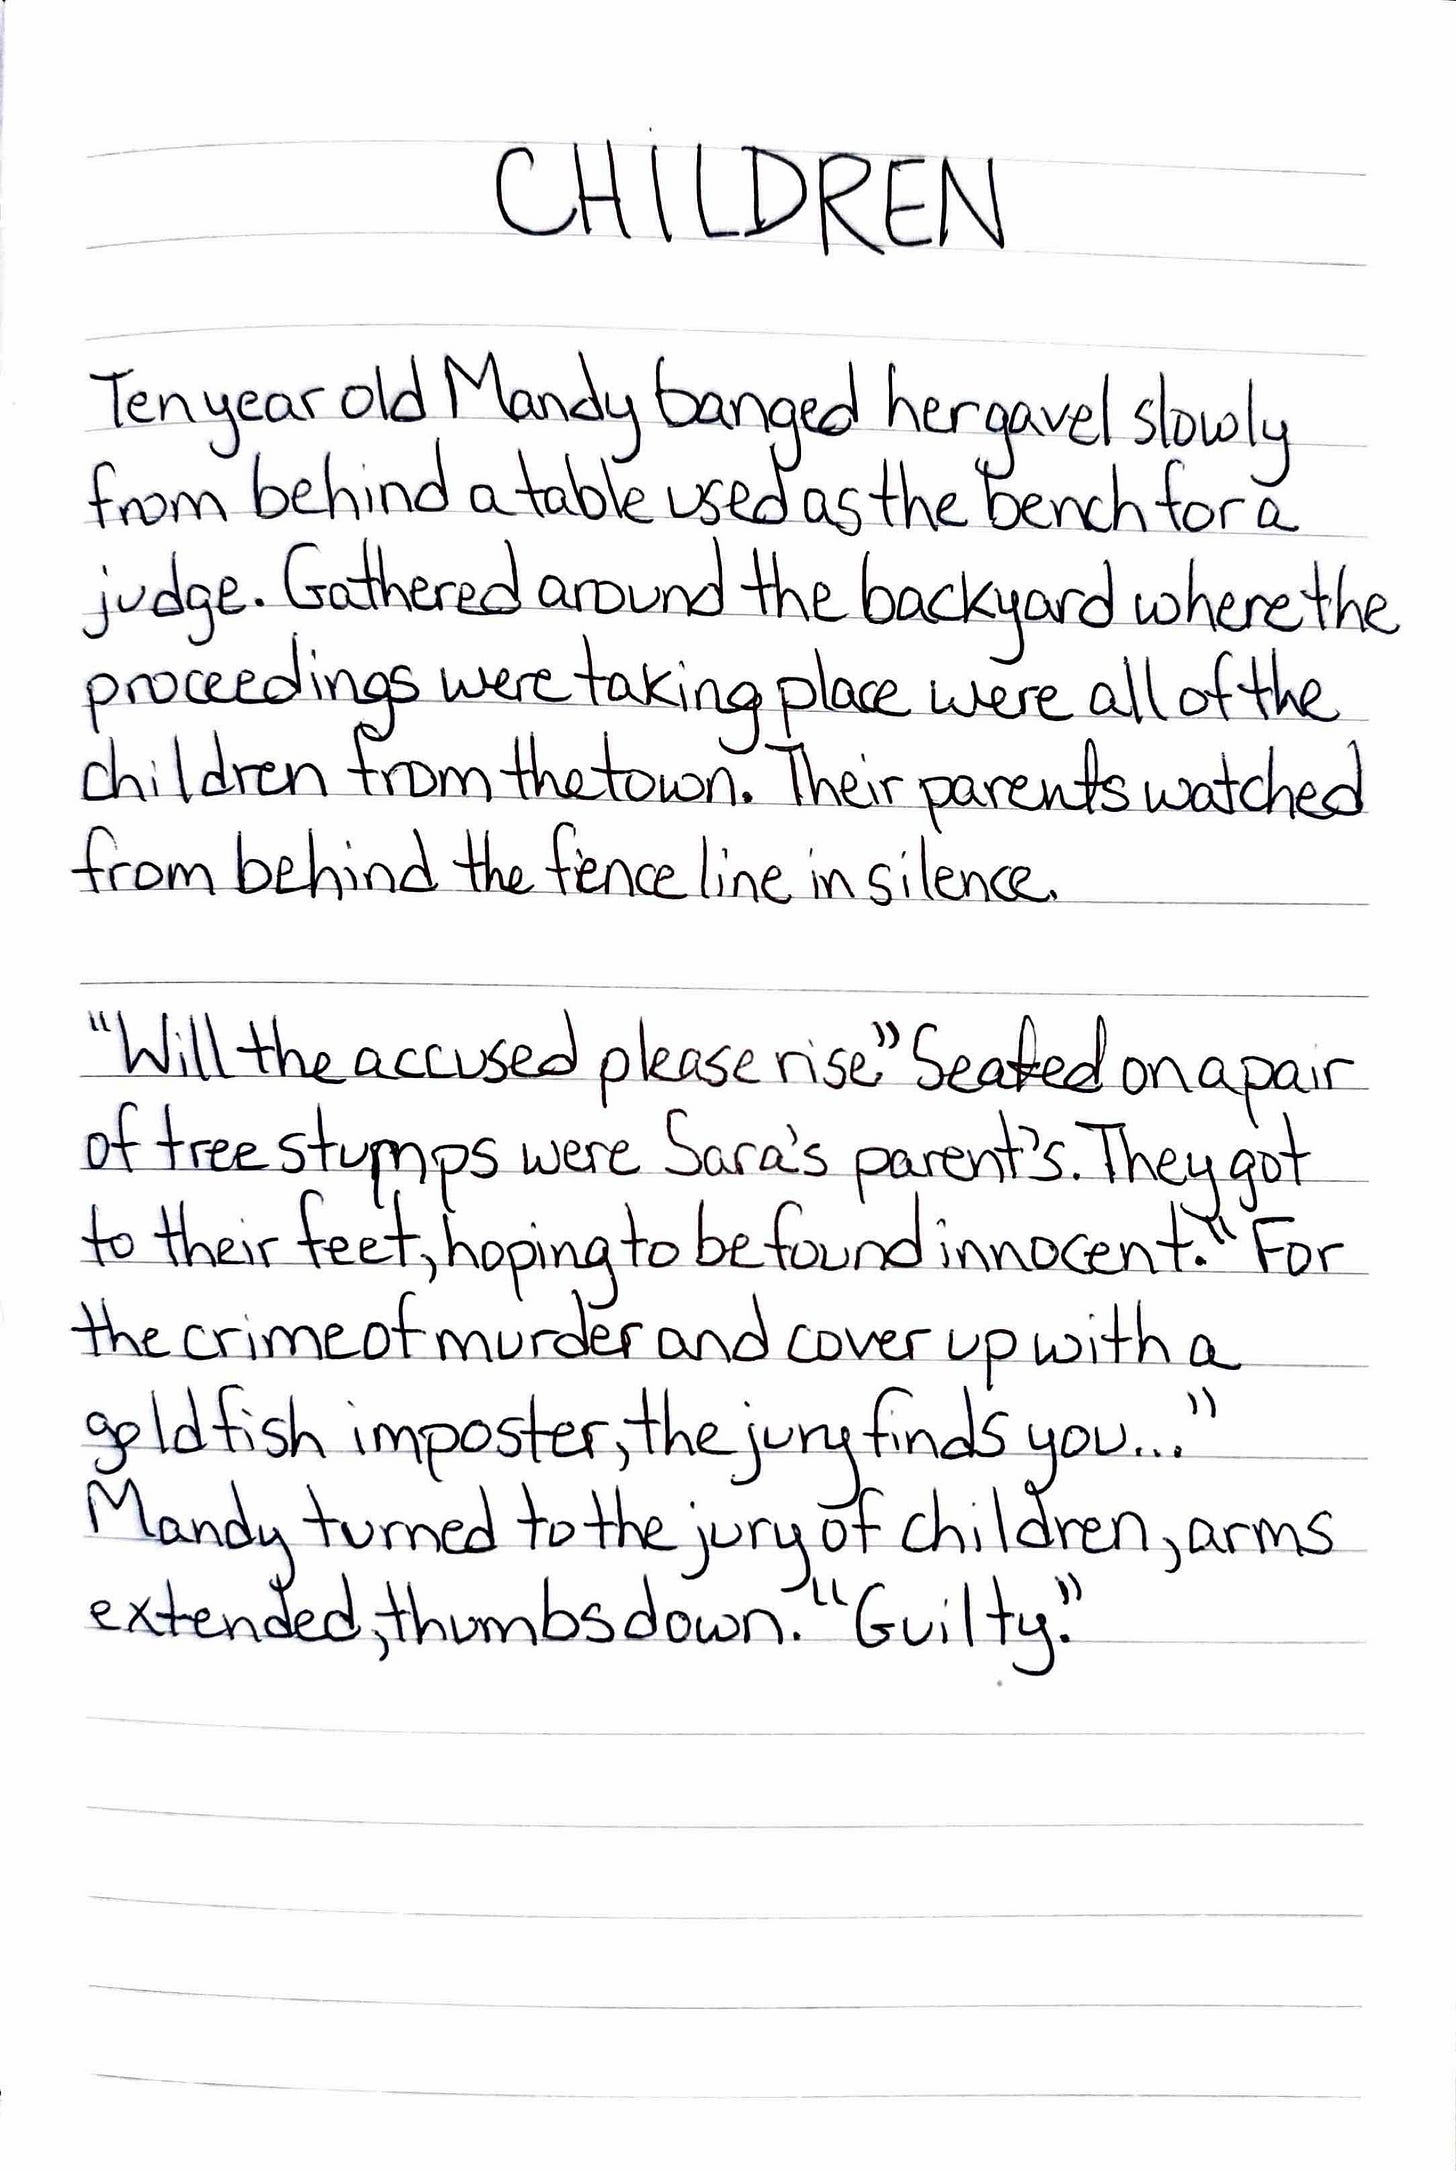 CHILDREN
Ten year old Mandy banged her gavel slowly
from behind a table used as the bench for a
judge. Gathered around the backyard where the
proceedings were taking place were all of the
children from the town. Their parents watched
from behind the fence line in silence.
“Will the accused please rise.” Seated on a pair
of tree stumps were Sara's parent's. They got
to their feet, hoping to be found innocent. “For
the crime of murder and cover up with a
goldfish imposter, the jury finds you...”
Mandy turned to the jury of children, arms
extended, thumbs down. “Guilty.”